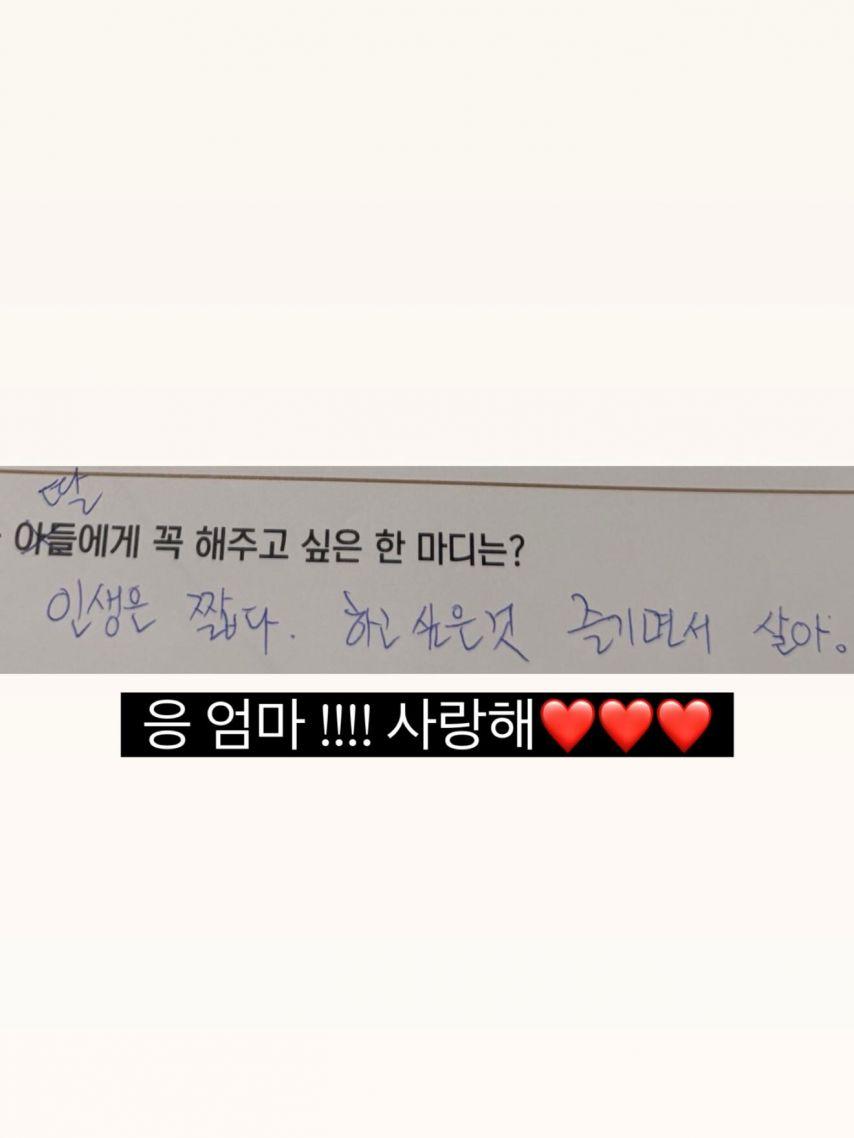 딸
아들에게 꼭 해주고 싶은 한 마디는?
인생은 짧다. 하고 싶은것 즐기면서 살아.
응 엄마 !!!! 사랑해❤️❤️❤️